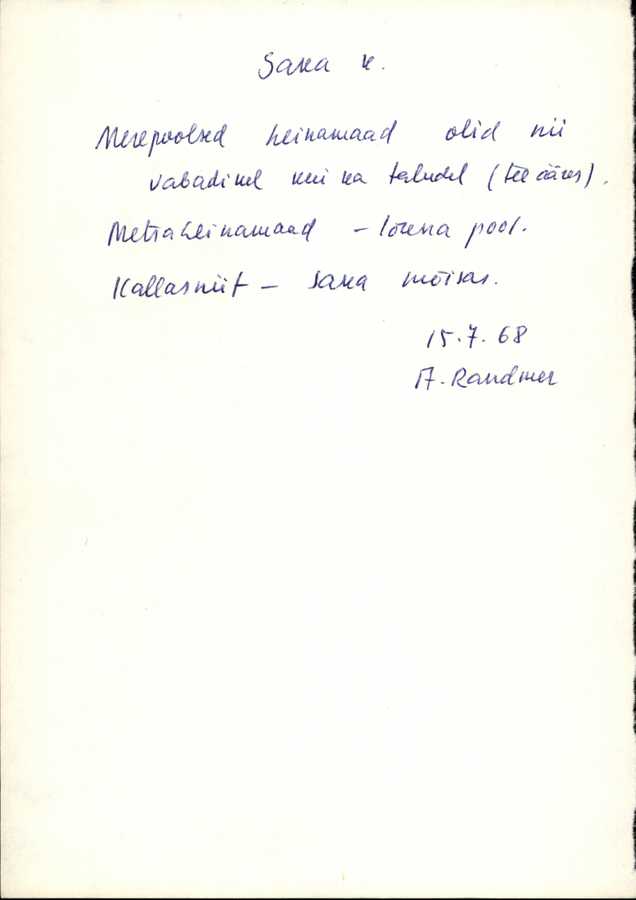 Saka k.
Merepoolsed heinamaad olid nii
vabadikel kui ka taludel (tee ääres).
Metsaheinamaad – lõuna pool.
Kallasniit – Saka mõisas.
15.7.68
A. Randmer